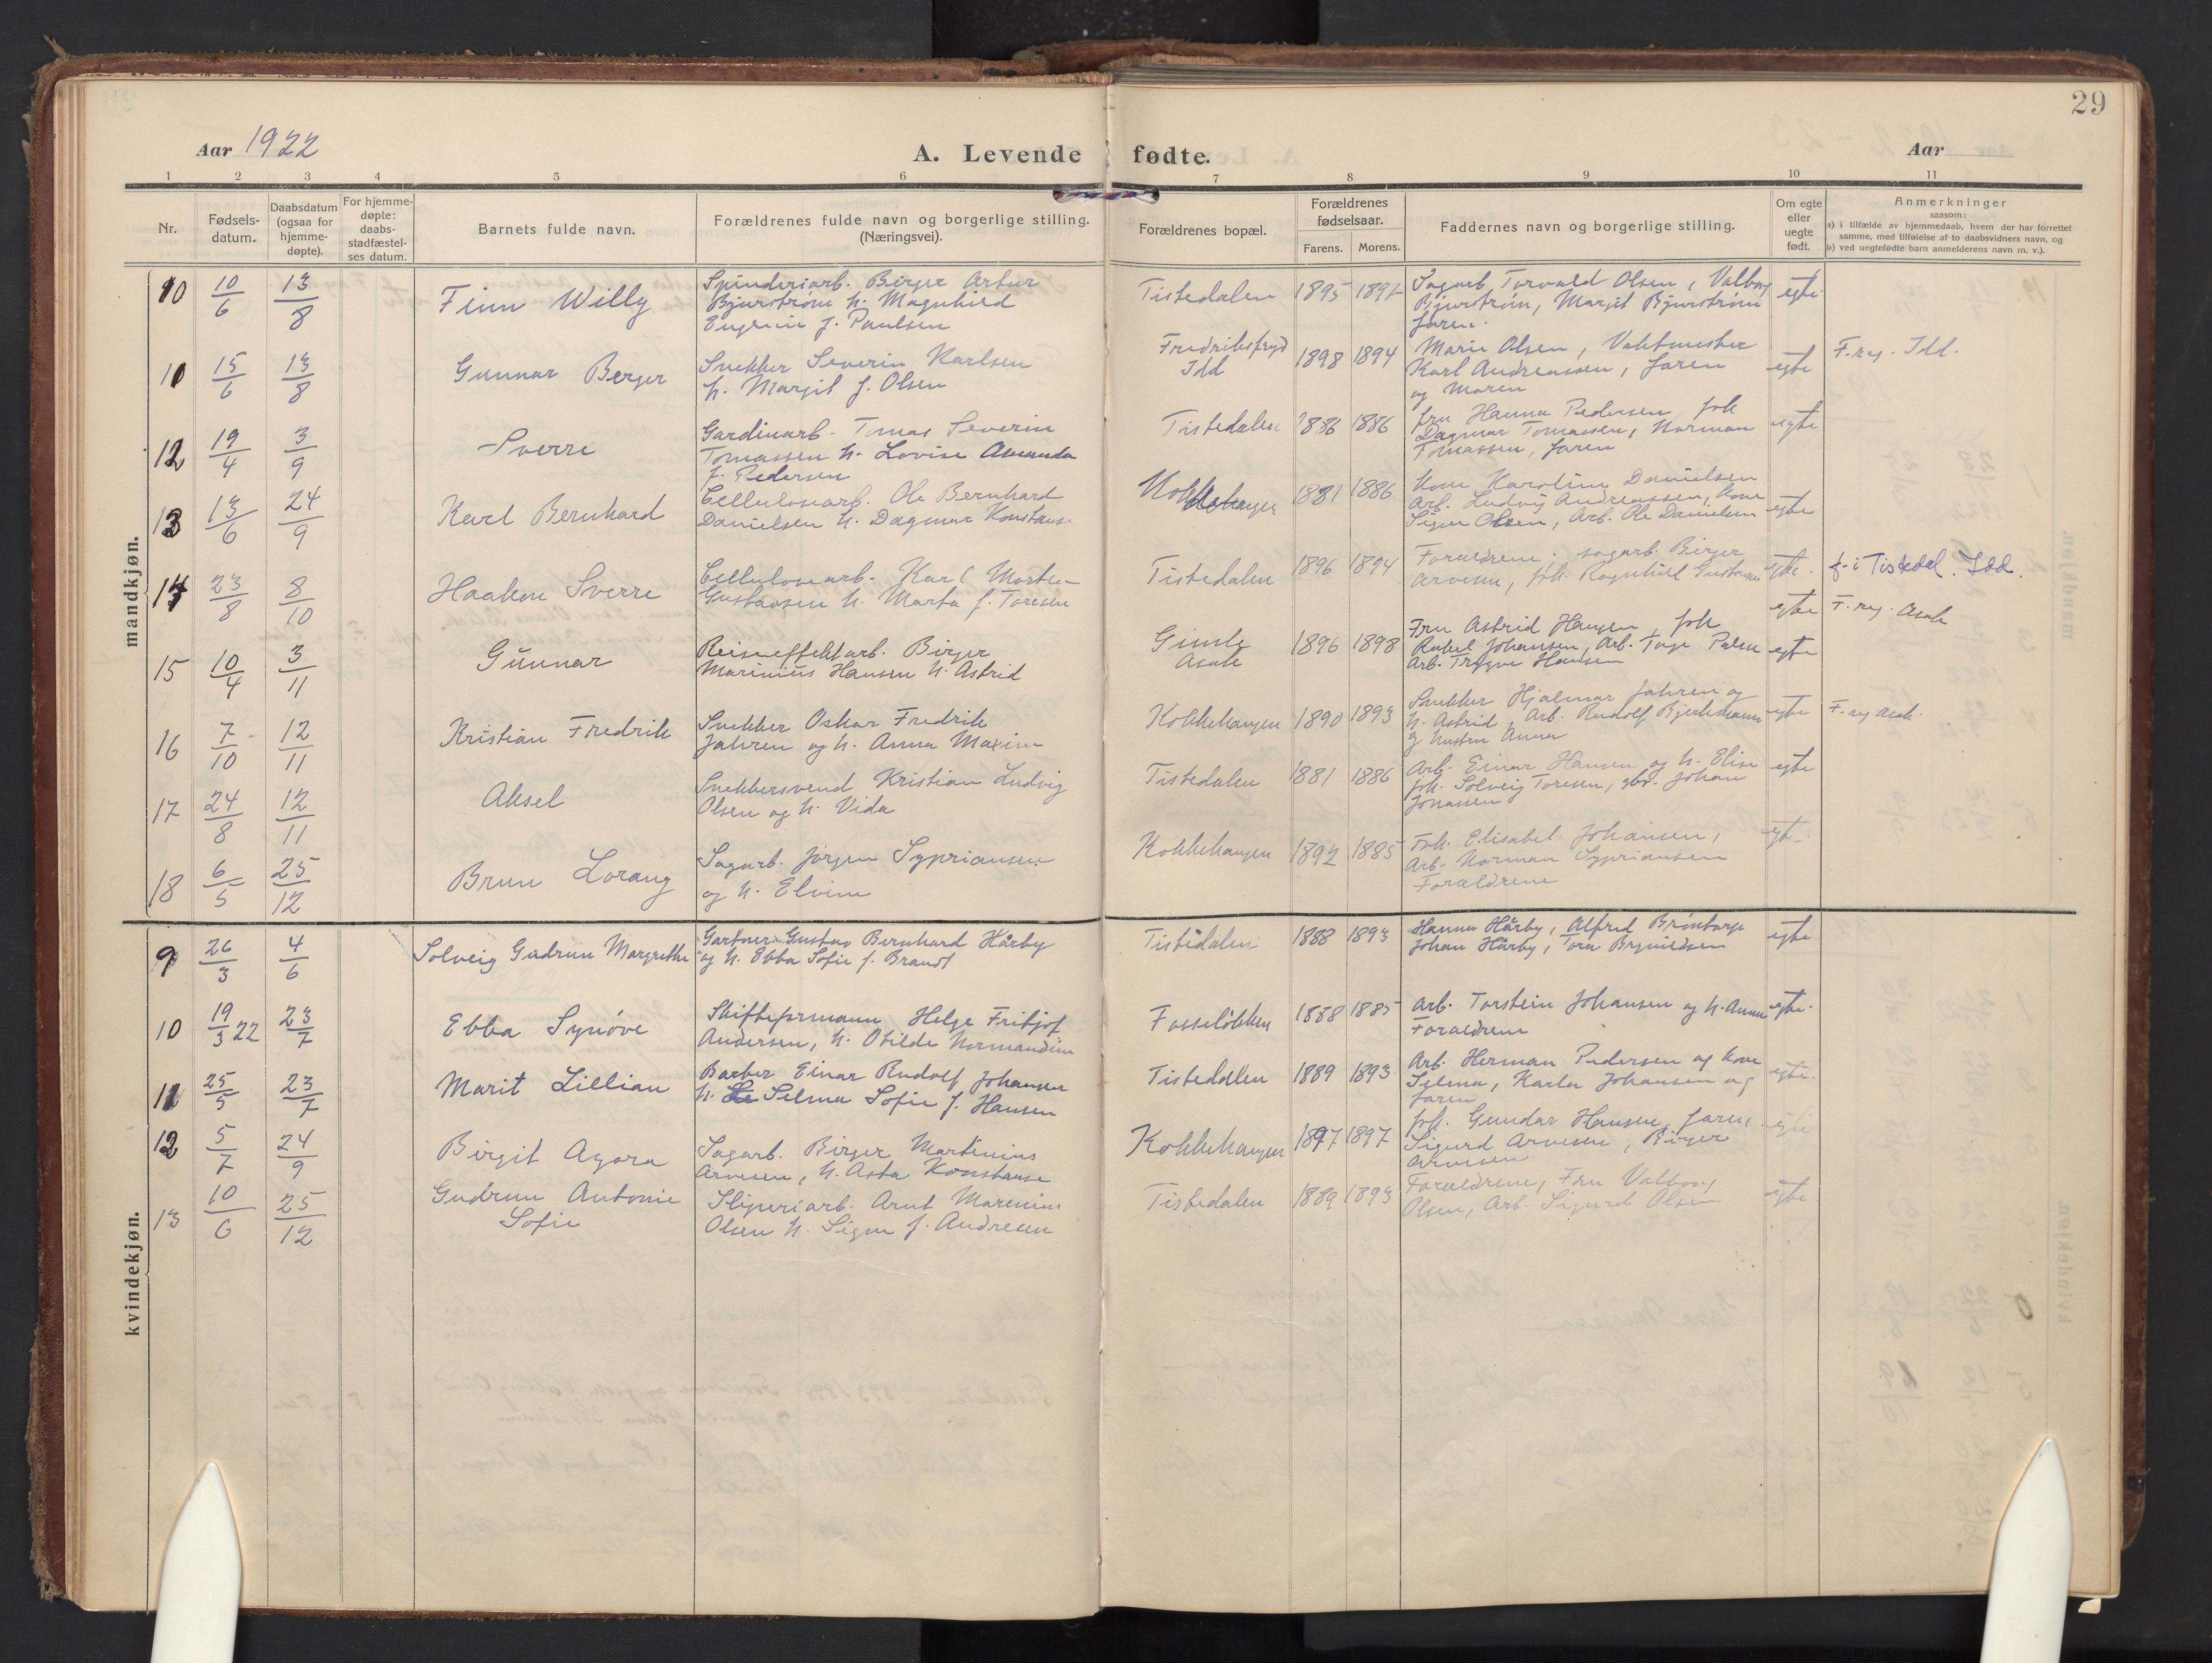 29
Aar 1922
A. Levende fødte.
Aar
1 2 3 4 5 6 7 8 9 10 11
Nr.
Fødsels-
datum.
Daabsdatum
(ogsaa for
hjemme-
døpte).
For hjemme-
døpte:
daabs-
stadfæstel-
ses datum.
Barnets fulde navn.
Forældrenes fulde navn og borgerlige stilling.
(Næringsvei).
Forældrenes bopæl.
Forældrenes
fødselsaar.
Farens. Morens.
Faddernes navn og borgerlige stilling.
Om egte
eller
uegte
født.
Anmerkninger
saasom:
a) i tilfælde av hjemmedaab, hvem der har forrettet
samme, med tilføielse af to daabsvidners navn, og
b) ved uegtefødte barn anmelderens navn m. v.).
mandkjøn.
10 10/6 13/8 Finn Willy
Spinderiarb. Birger Artur
Bjurstrøm h. Magnhild
Eugenie f. Paulsen
Tistedalen 1895
Sagarb Torvald Olsen, Valborg
Bjurstrøm, Margit Bjurstrøm
faren.
egte
15/6 13/8 Gunnar Berger
Snekker Severin Karlsen
h. Margit f. Olsen
Fredriksfryd
Idd
1898 1894
Marie Olsen, Vaktmester
Karl Andreassen, faren
og Moren
egte
F. reg. Idd.
12 19/4 3/9 Sverre
Gardinarb. Tomas Severin
Tomassen h. Lovise Amanda
f. Pedersen
Tistedalen 1886 1886
fru Hanna Pedersen, frk
Dagmar Tomassen, Norman
Tomassen, faren
egte
13 13/6 24/9 Karl Bernhard
Cellulosearb. Ole Bernhard
Danielsen h. Dagmar Konstanse
Kokkehaugen 1881 1886
Kone Karoline Danielsen
Arb. Ludvig Andreassen, Kone
Signe Olsen, Arb. Ole Danielsen
egte
14 23/8 8/10 Haakon Sverre
Cellulosearb. Karl Morten
Gustavsen h. Marta f. Toresen
Tistedalen 1896 1894
Forældrene, sagarb. Birger
Arvesen, frk. Ragnhild Gustavsen
egte.
f. i Tistedal. Idd.
15 10/4 3/11 Gunnar
Reiseeffektarb. Birger
Marinius Hansen h. Astrid
Gimle
Asak
1896 1898
Fru Astrid Haugen, frk
Rakel Johansen, Arb. Tage
Arb. Trygve Hansen
egte
egte
F. reg. Asak
16 7/10 12/11 Kristian Fredrik
Snekker Oskar Fredrik
Jahren og h. Anna Maxine
Kokkehaugen 1890 1893
Snekker Hjalmar Jahren og
h. Astrid, Arb. Rudolf
og hustru Anna
egte
F. reg Asak.
17 24/8 12/11 Aksel
Snekkersvend Kristian Ludvig
Olsen og h. Vida
Tistedalen 1881 1886
Arb. Einar Hansen og h. Elise
frk. Solveig Toresen, Johan
Jonassen
egte
18 6/5 25/12 Brun Lorang
Sagarb. Jørgen Sypriansen
og h. Elvine
Kokkehaugen 1892 1885
Frk. Elisabet Johansen,
Arb. Norman Sypriansen
Forældrene
egt.
kvindekjøn.
9 26/3 4/6 Solveig Gudrun Margrethe
Gartner Gustav Bernhard Hårby
og h. Ebba Sofie f. Brandt
Tistedalen 1888 1893
Hanna Hårby, Alfred
Johan Hårby, Tora Brynildsen
egte
10 19/3 22 23/7 Ebba Synøve
Skifteformann Helge Fritjof
Andersen, h. Otilde Normandine
Fosseløkken 1888 1885
Arb. Torstein Johansen og h. Anna
Forældrene
egte.
11 25/5 23/7 Marit Lillian
Barber Einar Rudolf Johansen
h. Selma Sofie f. Hansen
Tistedalen 1889 1893
Arb. Herman Pedersen og Kone
Selma, Karla Johansen og
faren
egte.
12 5/7 24/9 Birgit Agora
Sagarb. Birger Martinius
Arvesen, h. Asta Konstanse
Kokkehaugen 1897 1897
frk. Gundar Hansen, faren
Sigurd Arvesen, Birger
Arvesen
egte
13 10/6 25/12 Gudrun Antonie
Sofie
Sliperiarb. Arnt Marenius
Olsen h. Signe f. Andresen
Tistedalen 1889 1893
Forældrene, Fru Valborg
Olsen, Arb. Sigurd Olsen
egte